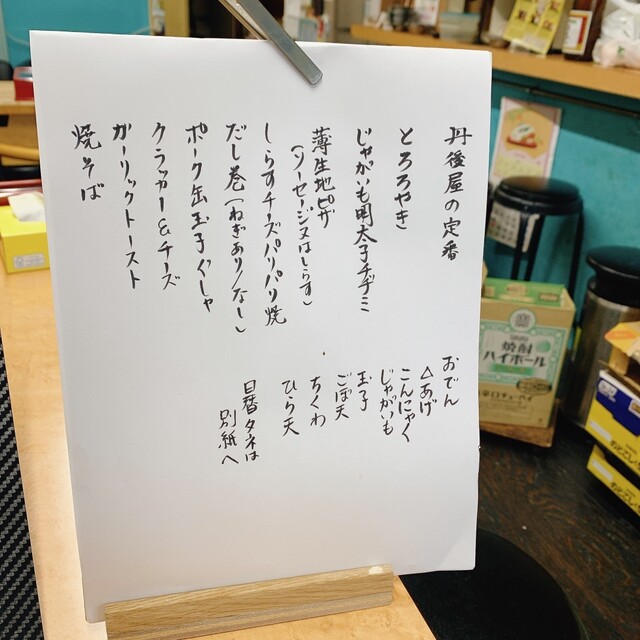 丹後屋の定番
とろろやき
じゃがいも明太子チヂミ
薄生地ピザ
(ソーセージ又はしらす)
しらすチーズパリパリ焼
だし巻(ねぎあり/なし)
ポーク缶玉子ぐしゃ
クラッカー&チーズ
ガーリックトースト
焼そば
おでん
△あげ
こんにゃく
じゃがいも
玉子
ごぼ天
ちくわ
ひら天
日替タネは
別紙へ
焼酎
ハイボール